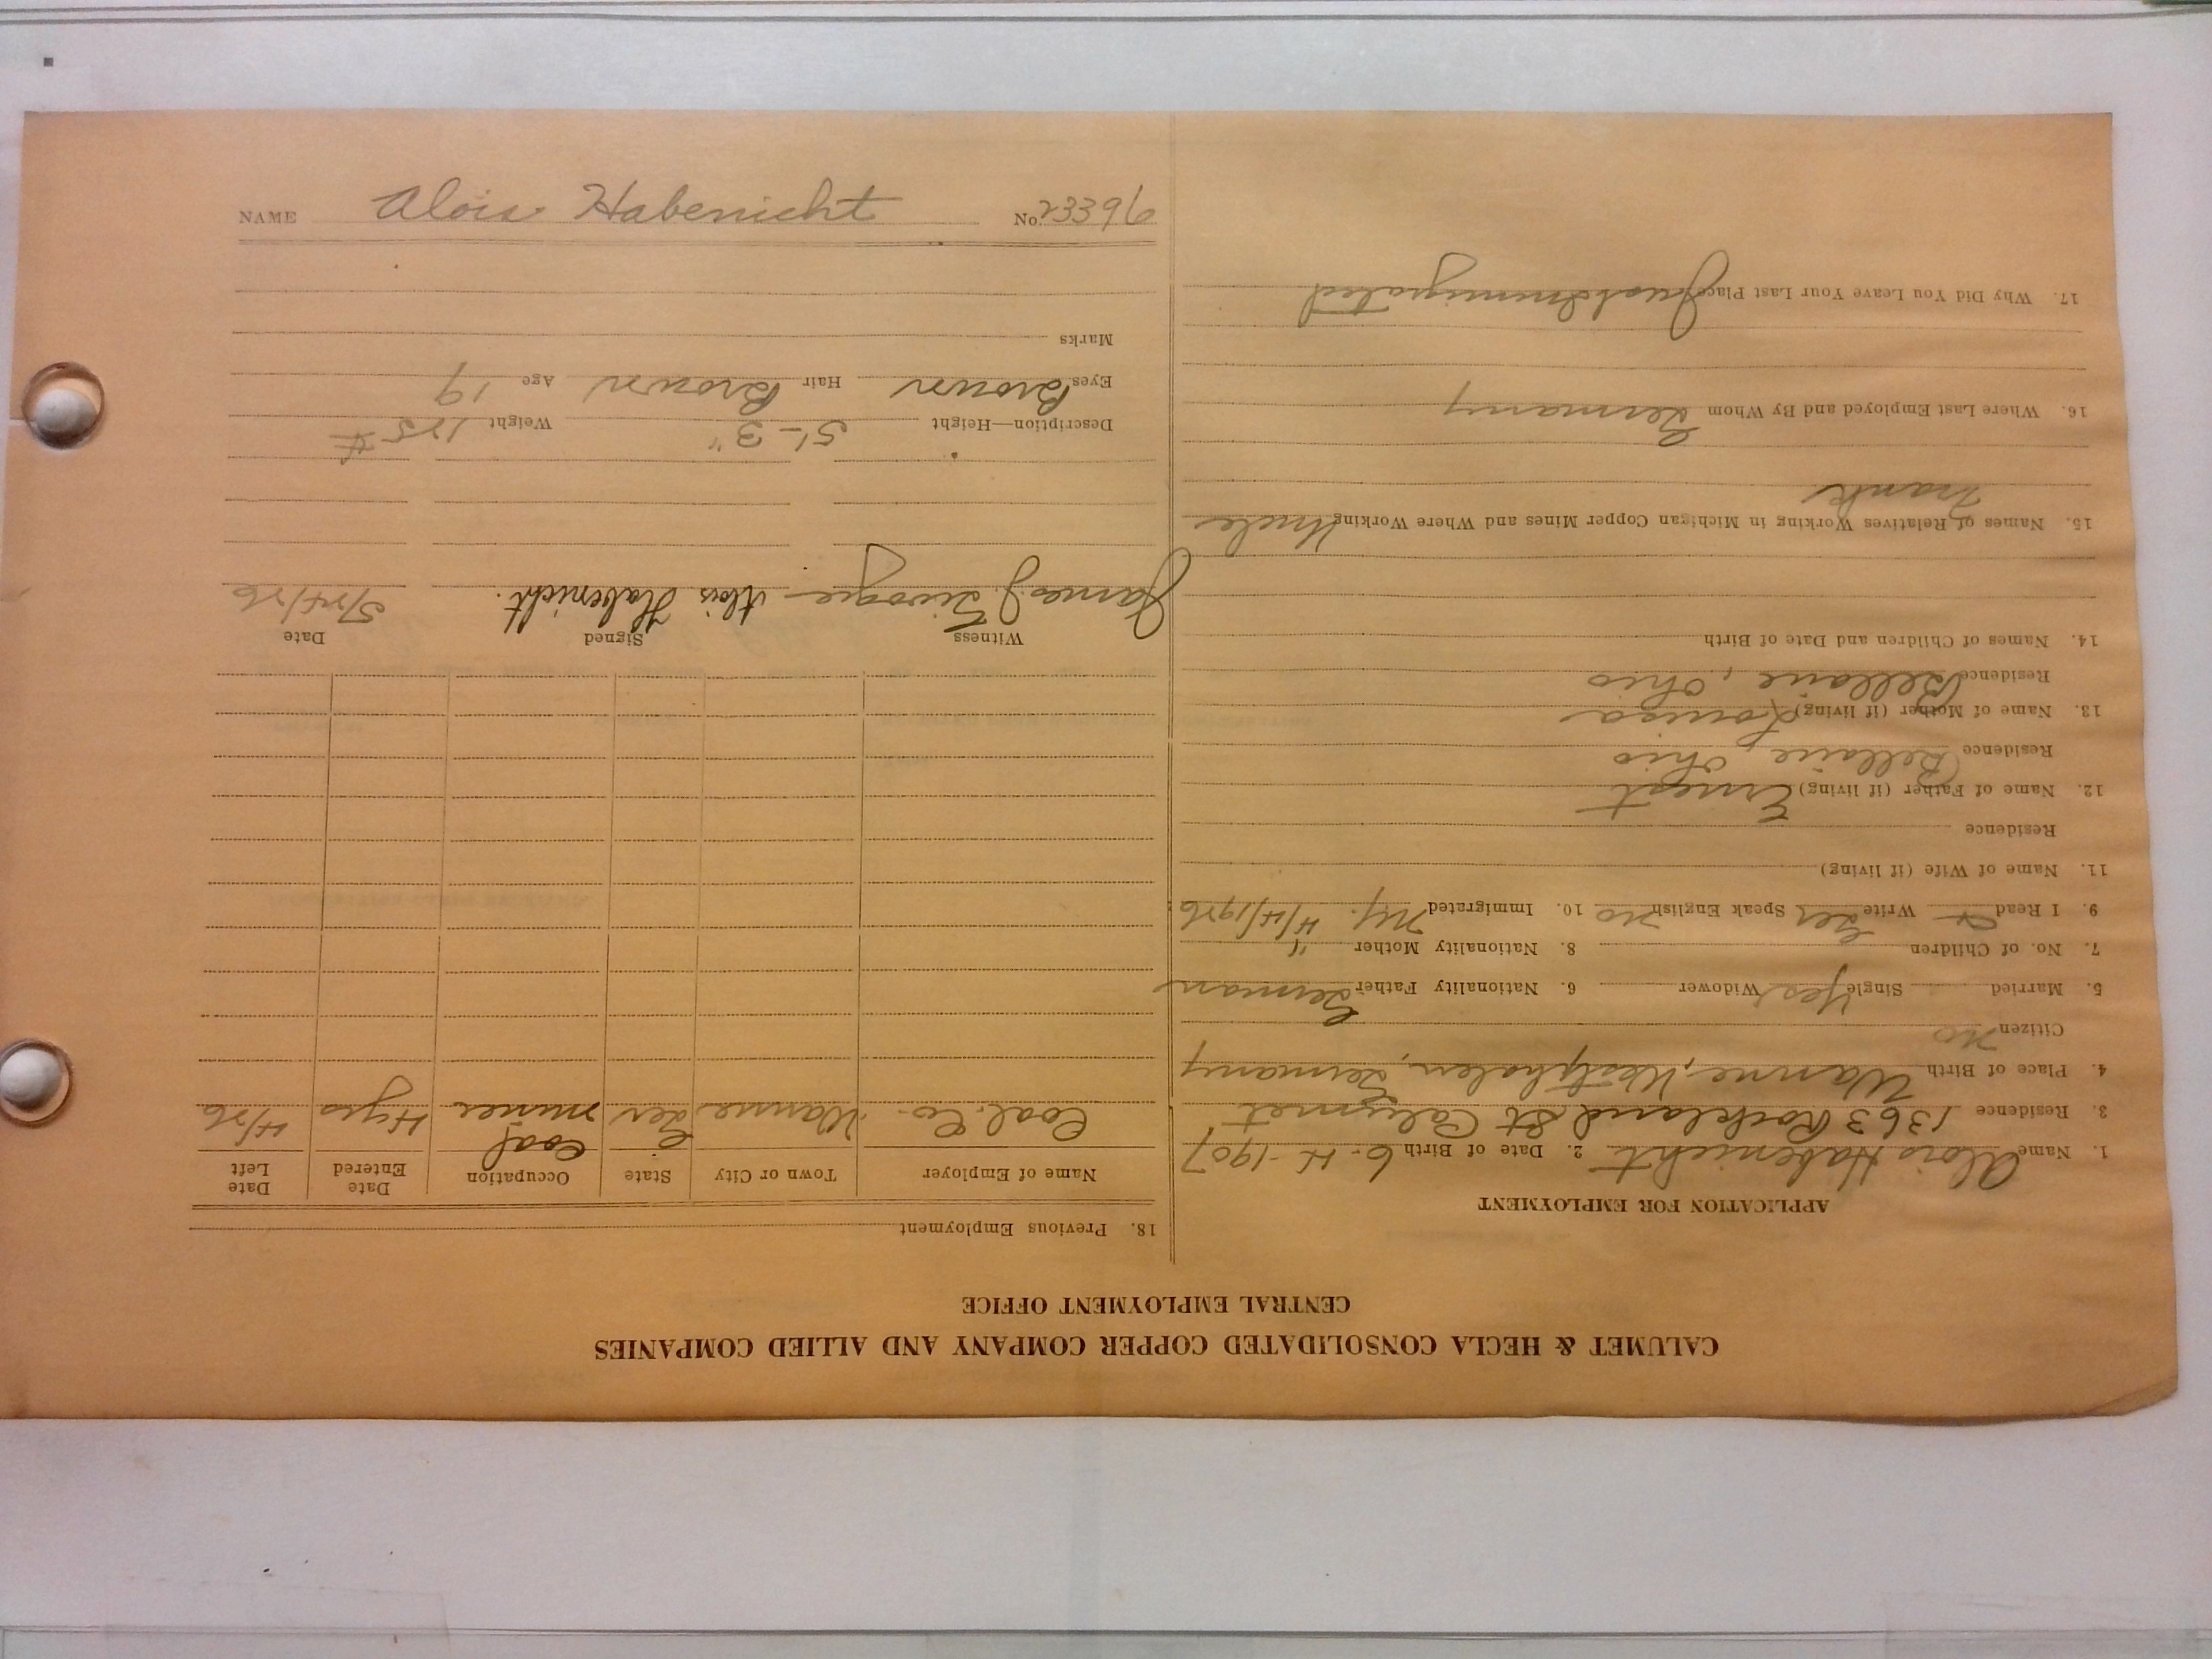 CALUMET & HECLA CONSOLIDATED COPPER COMPANY AND ALLIED COMPANIES
CENTRAL EMPLOYMENT OFFICE
APPLICATION FOR EMPLOYMENT
1. Name Alois Habenicht 2. Date of Birth 6-4-1907
3. Residence 1363 Rockland St Calumet
4. Place of Birth Wanne, Westphalen, Germany
Citizen no
5. Married Single Yes Widower 6. Nationality Father German
7. No. of Children 8. Nationality Mother "
9. I Read & Write Ger Speak English no 10. Immigrated N.Y. 4/4/1926
11. Name of Wife (if living)
Residence
12. Name of Father (if living) Ernest
Residence Bellaire, Ohio
13. Name of Mother (if living) Louisa
Residence Bellaire, Ohio
14. Names of Children and Date of Birth
15. Names of Relatives Working in Michigan Copper Mines and Where Working Uncle
Frank
16. Where Last Employed and By Whom Germany
17. Why Did You Leave Your Last Place Just Immigrated
18. Previous Employment
Name of Employer Town or City State Occupation Date Entered Date Left
Coal Co. Wanne Ger Coal miner 4yrs 4/26
Witness Signed Date
James J. Alois Habenicht. 5/24/26
Description—Height 5'-3" Weight 125 #
Eyes Brown Hair Brown Age 19
Marks
NAME Alois Habenicht No. 23396